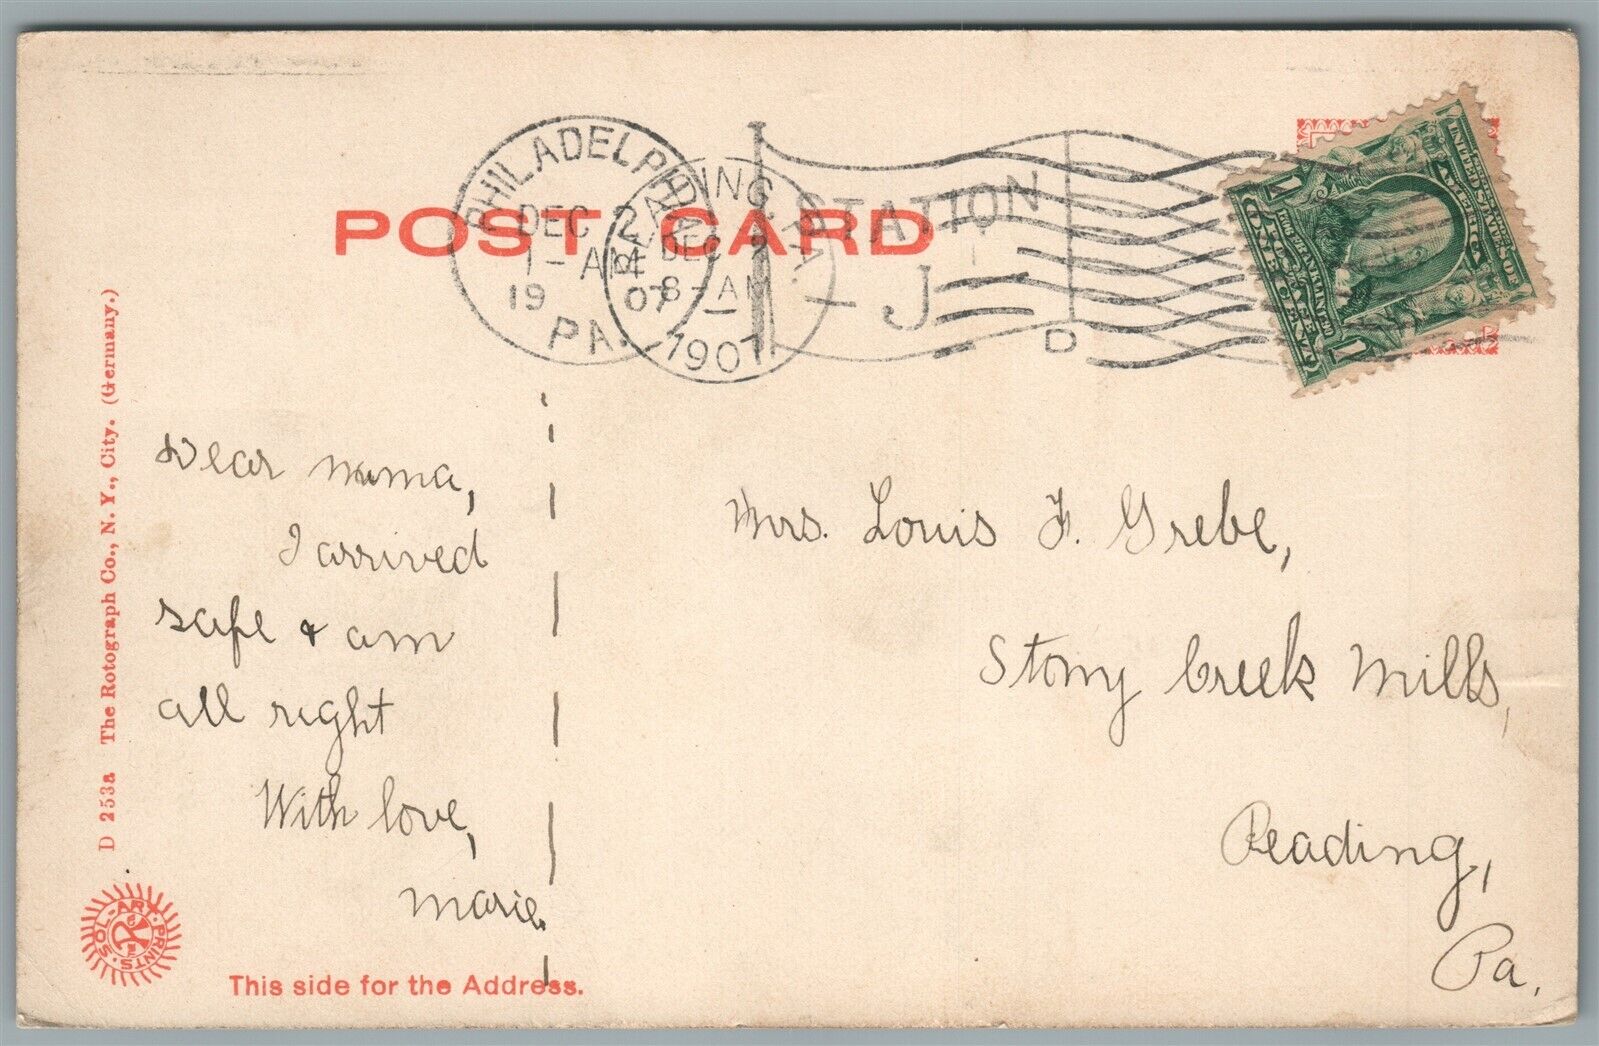 POST CARD
PHILADELPHIA
DEC 2
1 - AM
19 07
PA.
READING, PA.
DEC 2
8 - AM
1907
STATION
J
D
UNITED STATES OF AMERICA
1 ONE CENT 1
Dear Mama,
I arrived
safe & am
all right
With love,
Marie.
Mrs. Louis F. Grebe,
Stony Creek Mills,
Reading,
Pa.
D 253a The Rotograph Co., N. Y., City. (Germany.)
SOL-ART PRINTS.
This side for the Address.